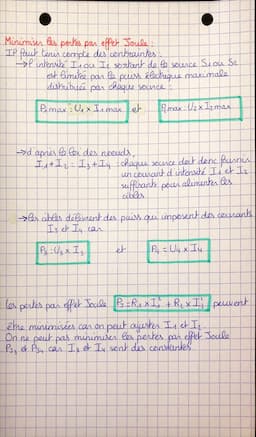 Minimiser les pertes par effet Joule :
Il faut tenir compte des contraintes :
→ l'intensité I1 ou I2 sortant de la source S1 ou S2
est limitée par la puiss électrique maximale
distribuée par chaque source :
P1max = U1 x I1max et P2max = U2 x I2max
→ d'après la loi des noeuds,
I1 + I2 = I3 + I4 : chaque source doit donc fournir
un courant d'intensité I1 et I2
suffisante pour alimenter les
cibles
→ les cibles délivrent des puiss qui imposent des courants
I3 et I4 car
P3 = U3 x I3 et P4 = U4 x I4
Les pertes par effet Joule PJ = R1 x I1² + R2 x I2² peuvent
être minimisées car on peut ajuster I1 et I2
On ne peut pas minimiser les pertes par effet Joule
PJ3 et PJ4 car I3 et I4 sont des constantes.